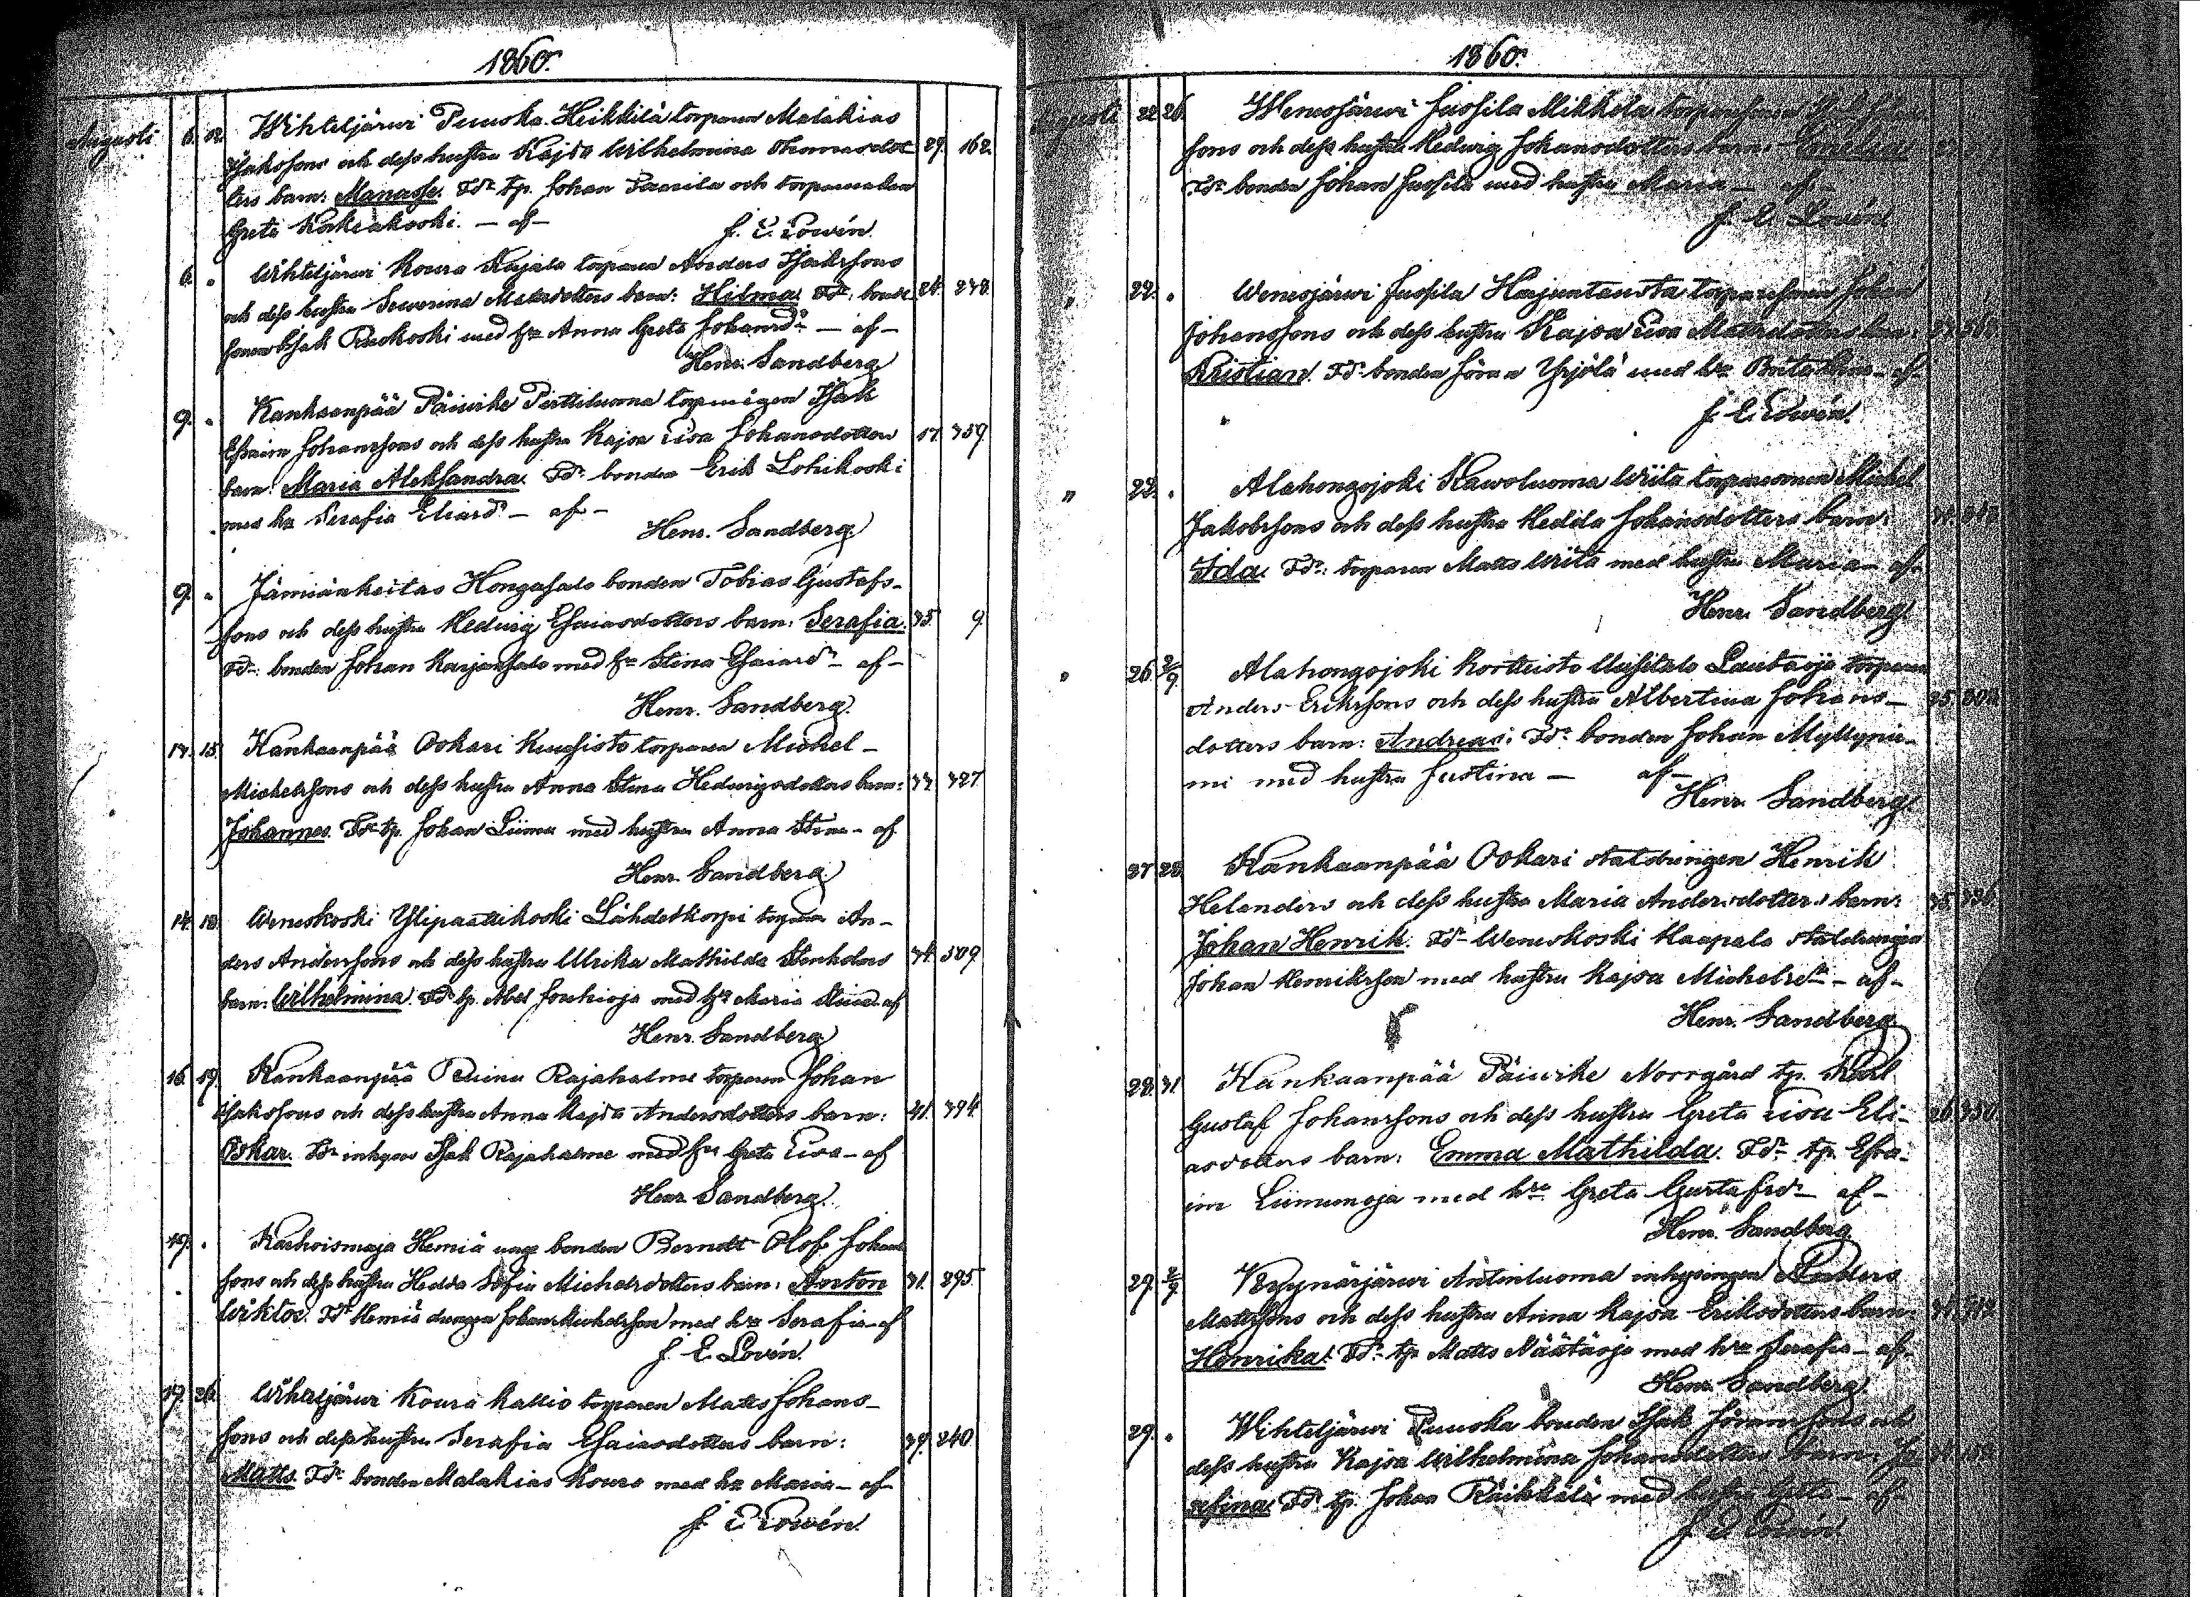 1860.
Augusti 6. 12. Wihteljärwi Puuska Heikkilä torparen Malakias
Isaksons och dess hustru Kajsa Wilhelmina Thomasdot- 29. 162.
ters barn: Manasse. Fdr tp. Johan Paasila och torparenkan
Greta Korkiakoski. — af —
J. E. Lowén.
6. " Wihteljärwi Koura Rajala torparen Anders Isaksons
och dess hustru Sewerina Matsdotters barn: Hilma. Fdr: bonde 24. 238.
sonen Isak Ruokoski med hu Anna Greta Johansdr — af —
Henr. Sandberg
9. " Kankaanpää Päiwike Perttiluoma torpauigen Isak
Efraim Johanssons och dess hustru Kajsa Eiva Johansdotters 359
barn: Maria Aleksandra. Fdr bonden Erik Lohikoski
med hu Serafia Eliasdr — af —
Henr. Sandberg.
9. " Jämiänkeitas Hongasalo bonden Tobias Gustafs-
sons och dess hustru Hedwig Esaiasdotters barn: Serafia. 35. 9.
Fdr: bonden Johan Karjansalo med hu Stina Esaiasdr — af —
Henr. Sandberg.
14. 15. Kankaanpää Ookari Kuusisto torparen Michel
Michelssons och dess hustru Anna Stina Hedwigsdotters barn: 33. 327.
Johannes. Fdr tp. Johan Liima med hustru Anna Stina — af
Henr. Sandberg.
14. 18. Weneskoski Ylipaattikoski Lähdetkorpi torparen An-
ders Anderssons och dess hustru Ulrika Mathilda Stenholms 34. 509.
barn: Wilhelmina. Fdr tp. Abel Jouhioja med hu Maria af
Henr. Sandberg
16. 19. Kankaanpää Ruinu Rajahalme torparen Johan
Isaksons och dess hustru Anna Kajsa Andersdotters barn: 41. 394.
Oskar. Fdr inhyses Isak Rajahalme med hu Greta Eiva — af
Henr. Sandberg.
19. " Karhoismaja Hemiä unge bonden Berndt Olof Johans
sons och dess hustru Hedda Sofia Michelsdotters barn: Anton 31. 295.
Wiktor. Fdr Hemiä drengen Johan Michelsson med hu Serafia — af
J. E. Lovén.
19. 26. Wihteljärwi Koura Kallio torparen Matts Johans-
sons och dess hustru Serafia Esaiasdotters barn: 39. 240.
Matts. Fdr bonden Malakias Koura med hu Maria — af
J. E. Lowén.
1860.
Augusti 22. 26. Wenesjärwi Jussila Mikkola torparesonen
sons och dess hustru Hedwig Johansdotters barn: Emelia.
Fdr bonden Johan Jussila med hustru Maria — af —
J. E. Lovén
" 22. " Wenesjärwi Jussila Harjuntausta torparesonen Johan
Johanssons och dess hustru Kajsa Eiva Matsdotters barn:
Kristian. Fdr bonden Jöran Yrjölä med hu Brita — af
J. E. Lowén.
" 22. " Alahongojoki Kawoluoma Wiita torparesonen Michel
Jakobssons och dess hustru Hedda Johansdotters barn:
Ida. Fdr: torparen Matts Wiita med hustru Maria — af
Henr. Sandberg
" 26. 2/9. Alahongojoki Kortteisto Uusitalo Lautaoja torparen
Anders Erikssons och dess hustru Albertina Johans-
dotters barn: Andreas. Fdr bonden Johan Myllynie-
mi med hustru Justina — af —
Henr. Sandberg
27 28. Kankaanpää Ookari statdrängen Henrik
Helanders och dess hustru Maria Andersdotters barn:
Johan Henrik. Fdr Weneskoski Kaapalo statdrängen
Johan Henriksson med hustru Kajsa Michelsdr — af —
Henr. Sandberg
28. 31 Kankaanpää Päiwike Norrgård tp. Karl
Gustaf Johanssons och dess hustru Greta Eiva Eli-
asdotters barn: Emma Mathilda. Fdr tp. Efra-
im Liinunoja med hu Greta Gustafsdr af —
Henr. Sandberg
29. 2/9. Kyynärjärwi Antinluoma inhysingen Anders
Mattssons och dess hustru Anna Kajsa Eriksdotters barn:
Henrika. Fdr: tp Matts Näätäoja med hu Serafia — af —
Henr. Sandberg
29. " Wihteljärwi Puuska bonden Isak Jöranssons och
dess hustru Kajsa Wilhelmina Johansdotters barn: Jo
sefina. Fdr tp. Johan Räikkälä med hustru Greta — af
J. E. Lowén.